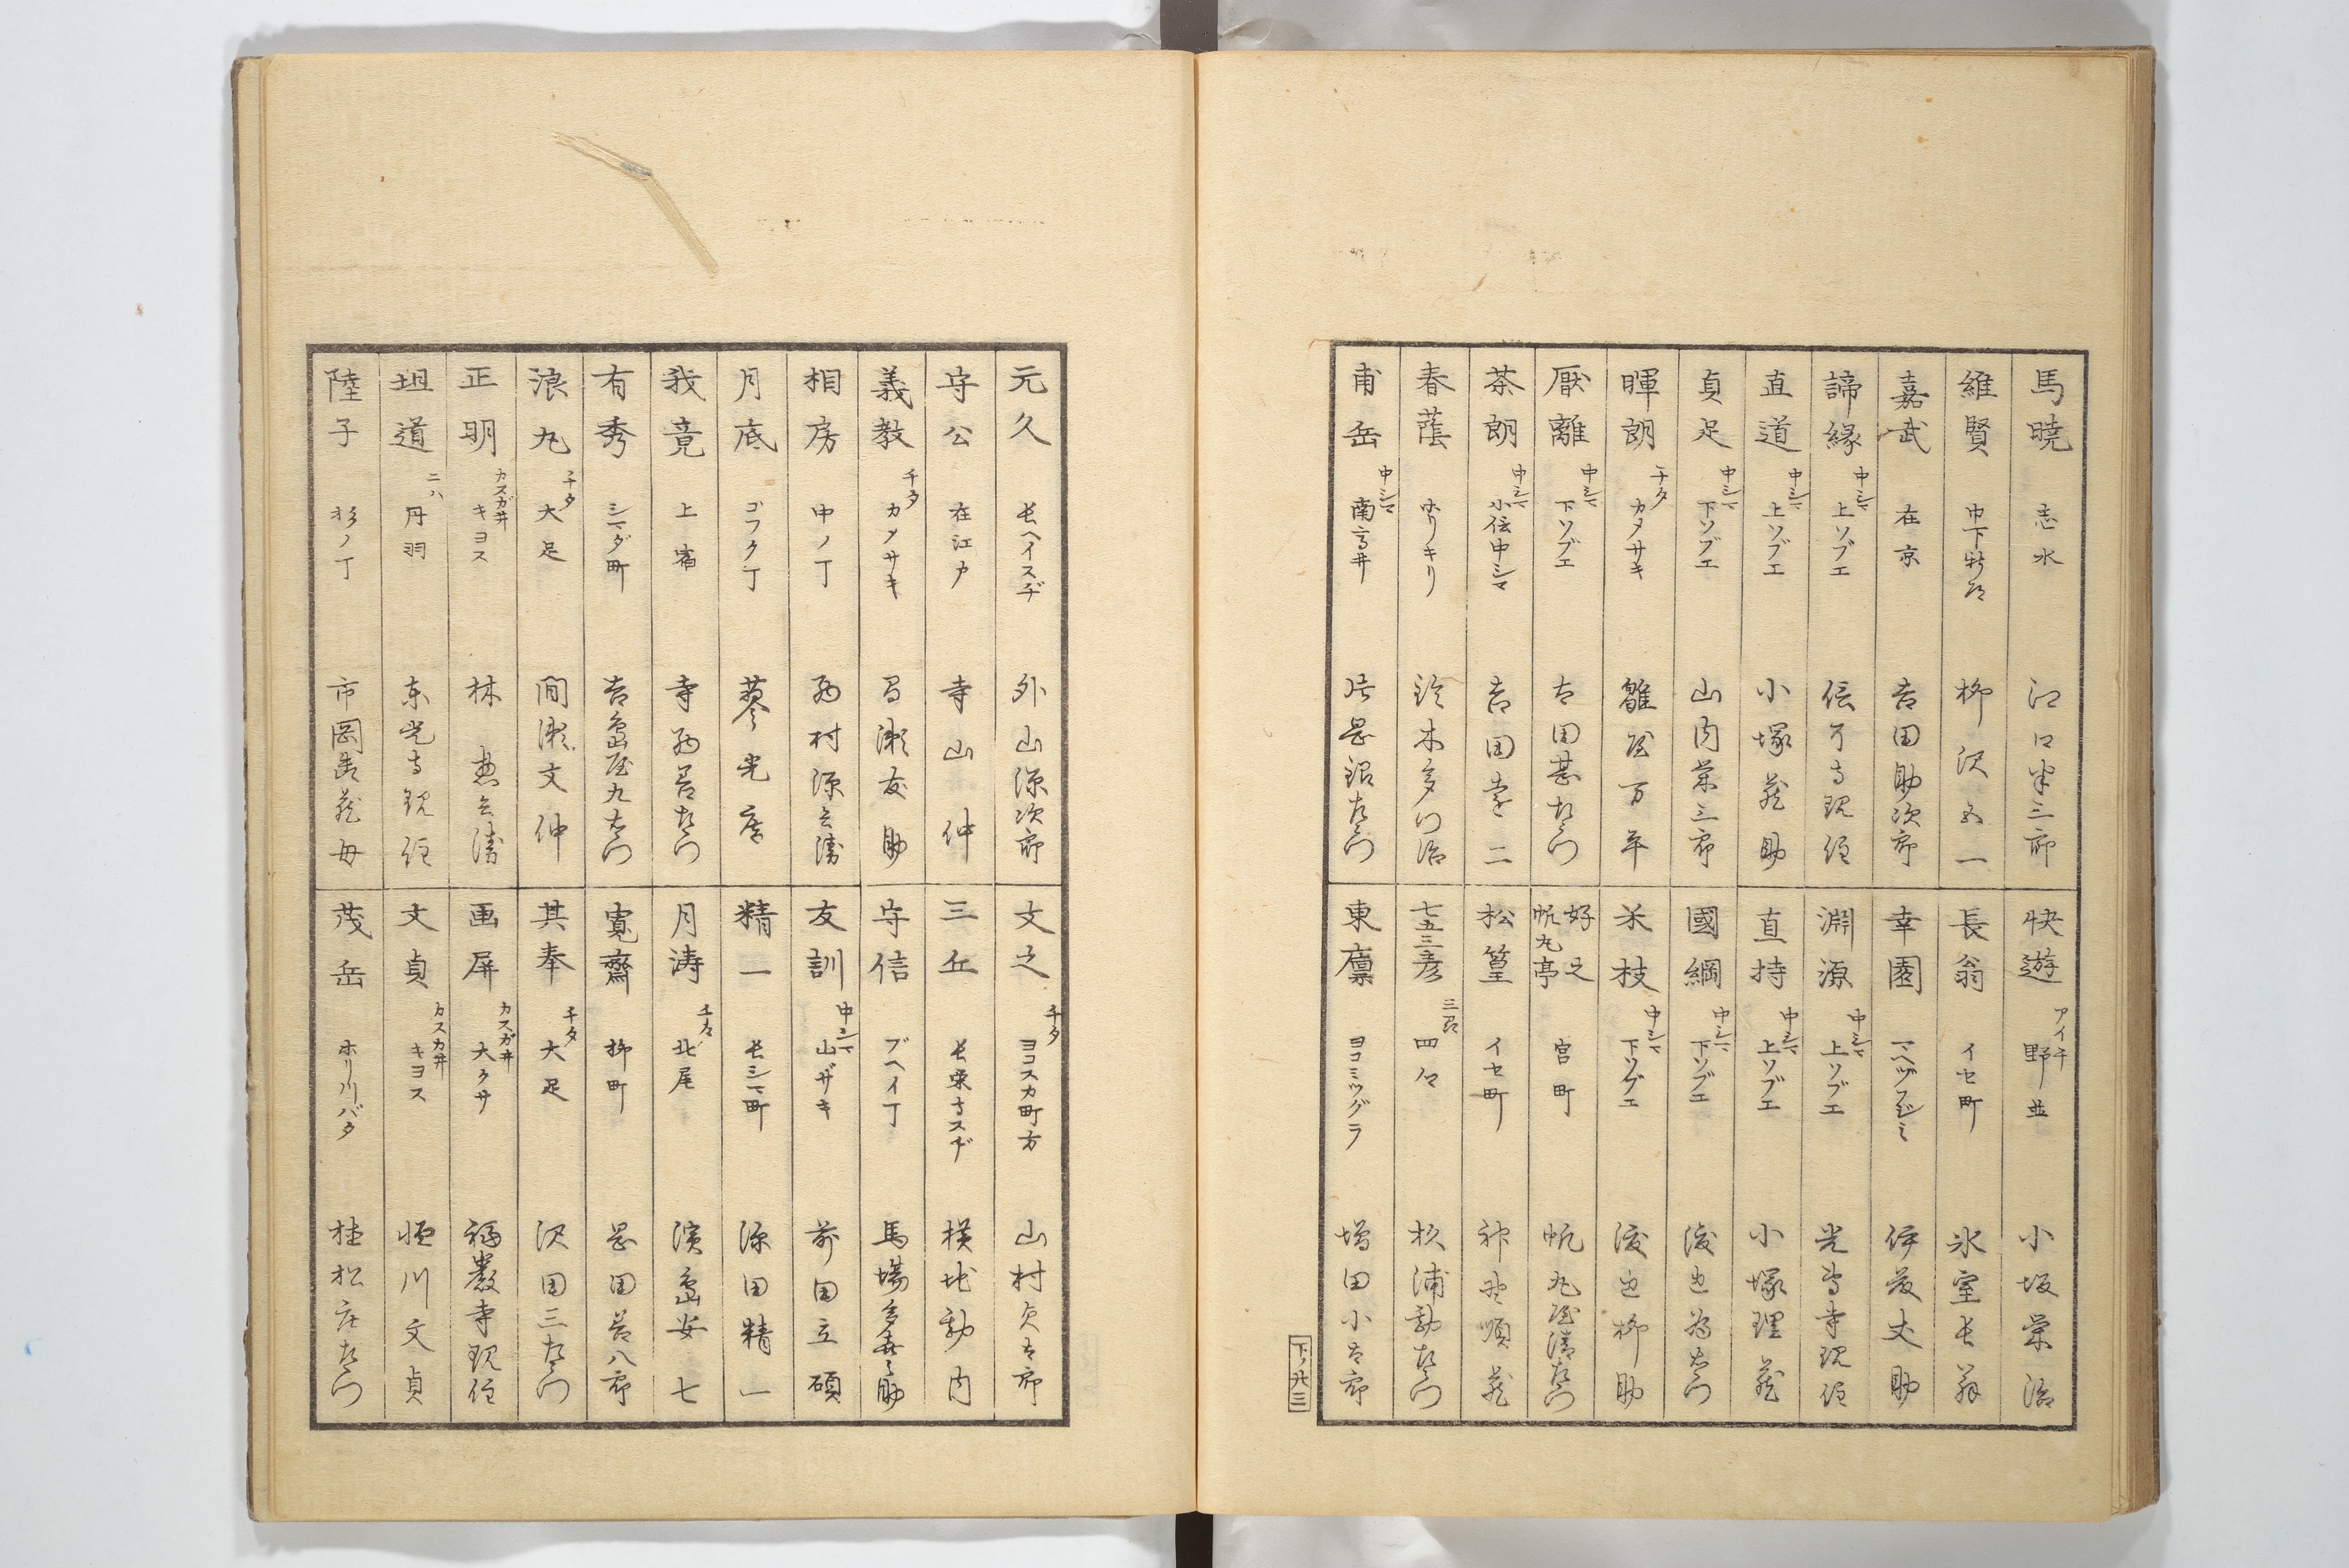 馬曉 志水 江口半三郎
維賢 中下 柳沢 一
嘉武 在京 吉田助次郎
諦縁 中シマ 上ソブエ 信行寺現住
直道 中シマ 上ソブエ 小塚蔵助
貞足 中シマ 下ソブエ 山内栄三郎
暉朗 チタ カメサキ 雛屋万年
厭離 中シマ 下ソブエ 吉田甚左衛門
茶朗 中シマ 小信中シマ 吉田 二
春蔭 ホリキリ 鈴木多門治
甫岳 中シマ 南高井
快遊 アイチ 野並 小坂栄治
長翁 イセ町 氷室長翁
幸園 マヘヅ フジミ 伊藤丈助
淵源 中シマ 上ソブエ 光専寺現住
直持 中シマ 上ソブエ 小塚理蔵
國綱 中シマ 下ソブエ 渡辺為右衛門
米枝 中シマ 下ソブエ 渡辺柳助
好之 帆九亭 宮町 帆九屋清左衛門
松篁 イセ町 神 順蔵
七五三彦 四ツ 松浦勘左衛門
東廩 ヨコミツグラ 増田小太郎
下ノ廿三
元久 長ヘイスヂ 外山源次郎
守公 在江戸 寺山 仲
義教 チタ カメサキ 間瀬友助
相房 中ノ丁 西村源兵衛
月底 ゴフク丁 蓼光居
我竟 上宿 寺西 左衛門
有秀 シマダ町 吉島屋九右衛門
浪丸 チタ 大足 間瀬文仲
正明 カスガ井 キヨス 林 惣兵衛
坦道 ニハ 丹羽 東光寺現住
陸子 杉ノ丁 市岡 蔵母
文之 チタ ヨコスカ町方 山村 太郎
三丘 長栄寺スヂ 横地勘内
守信 ブヘイ丁 馬場多喜之助
友訓 中シマ 山ザキ 前田立碩
精一 長シマ町 源田精一
月涛 チタ 北尾 濱島安七
寛齋 柳町 岡田善八郎
其奉 チタ 大足 沢田三左衛門
画屏 カスガ井 大クサ 福嚴寺現住
文貞 カスカ井 キヨス 恒川文貞
茂岳 ホリ川バタ 植松庄左衛門